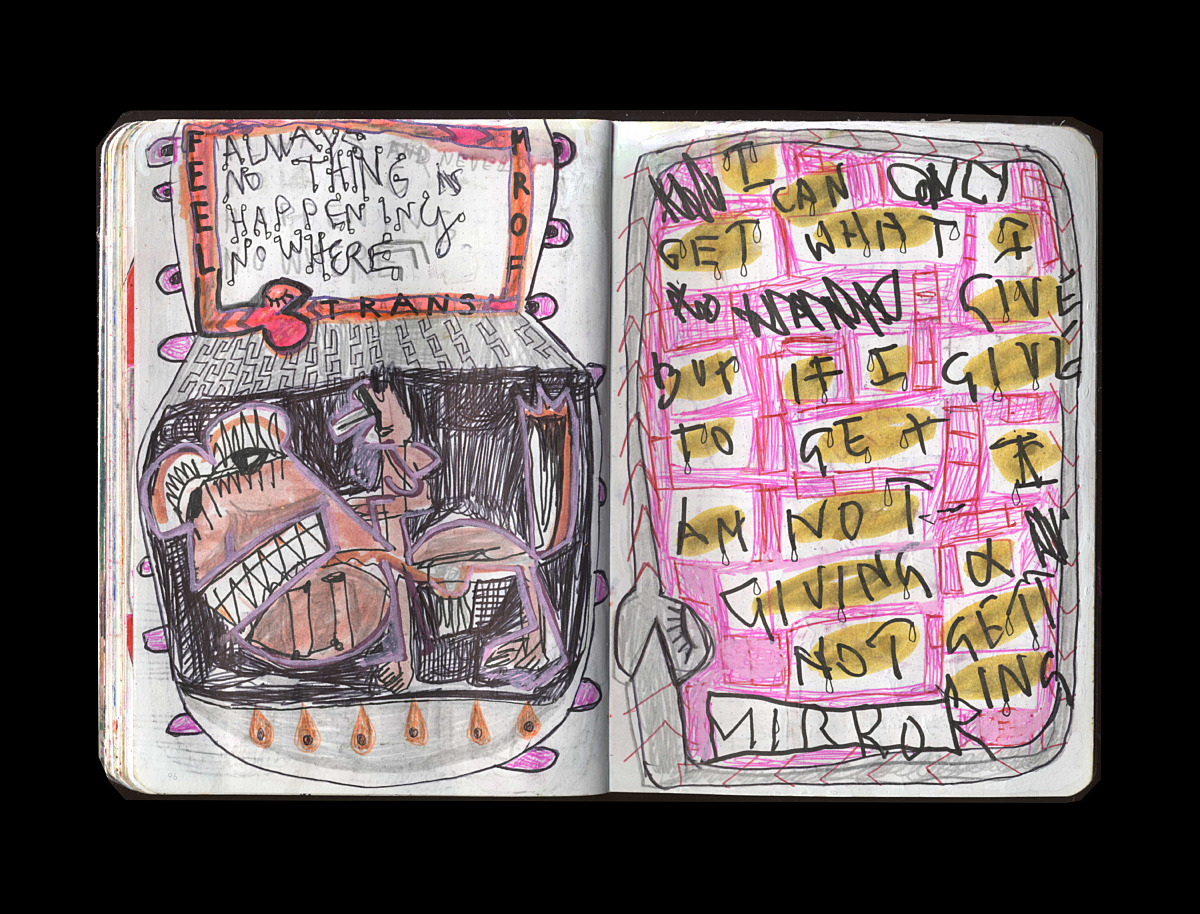 FEEL
TRANS
MROF
ALWAYS AND NEVER
NO THING IS
HAPPENING
NOWHERE
96
I CAN ONLY
GET WHAT I
GIVE
BUT IF I GIVE
TO GET I
AM NOT
GIVING &
NOT GETT
ING
MIRROR